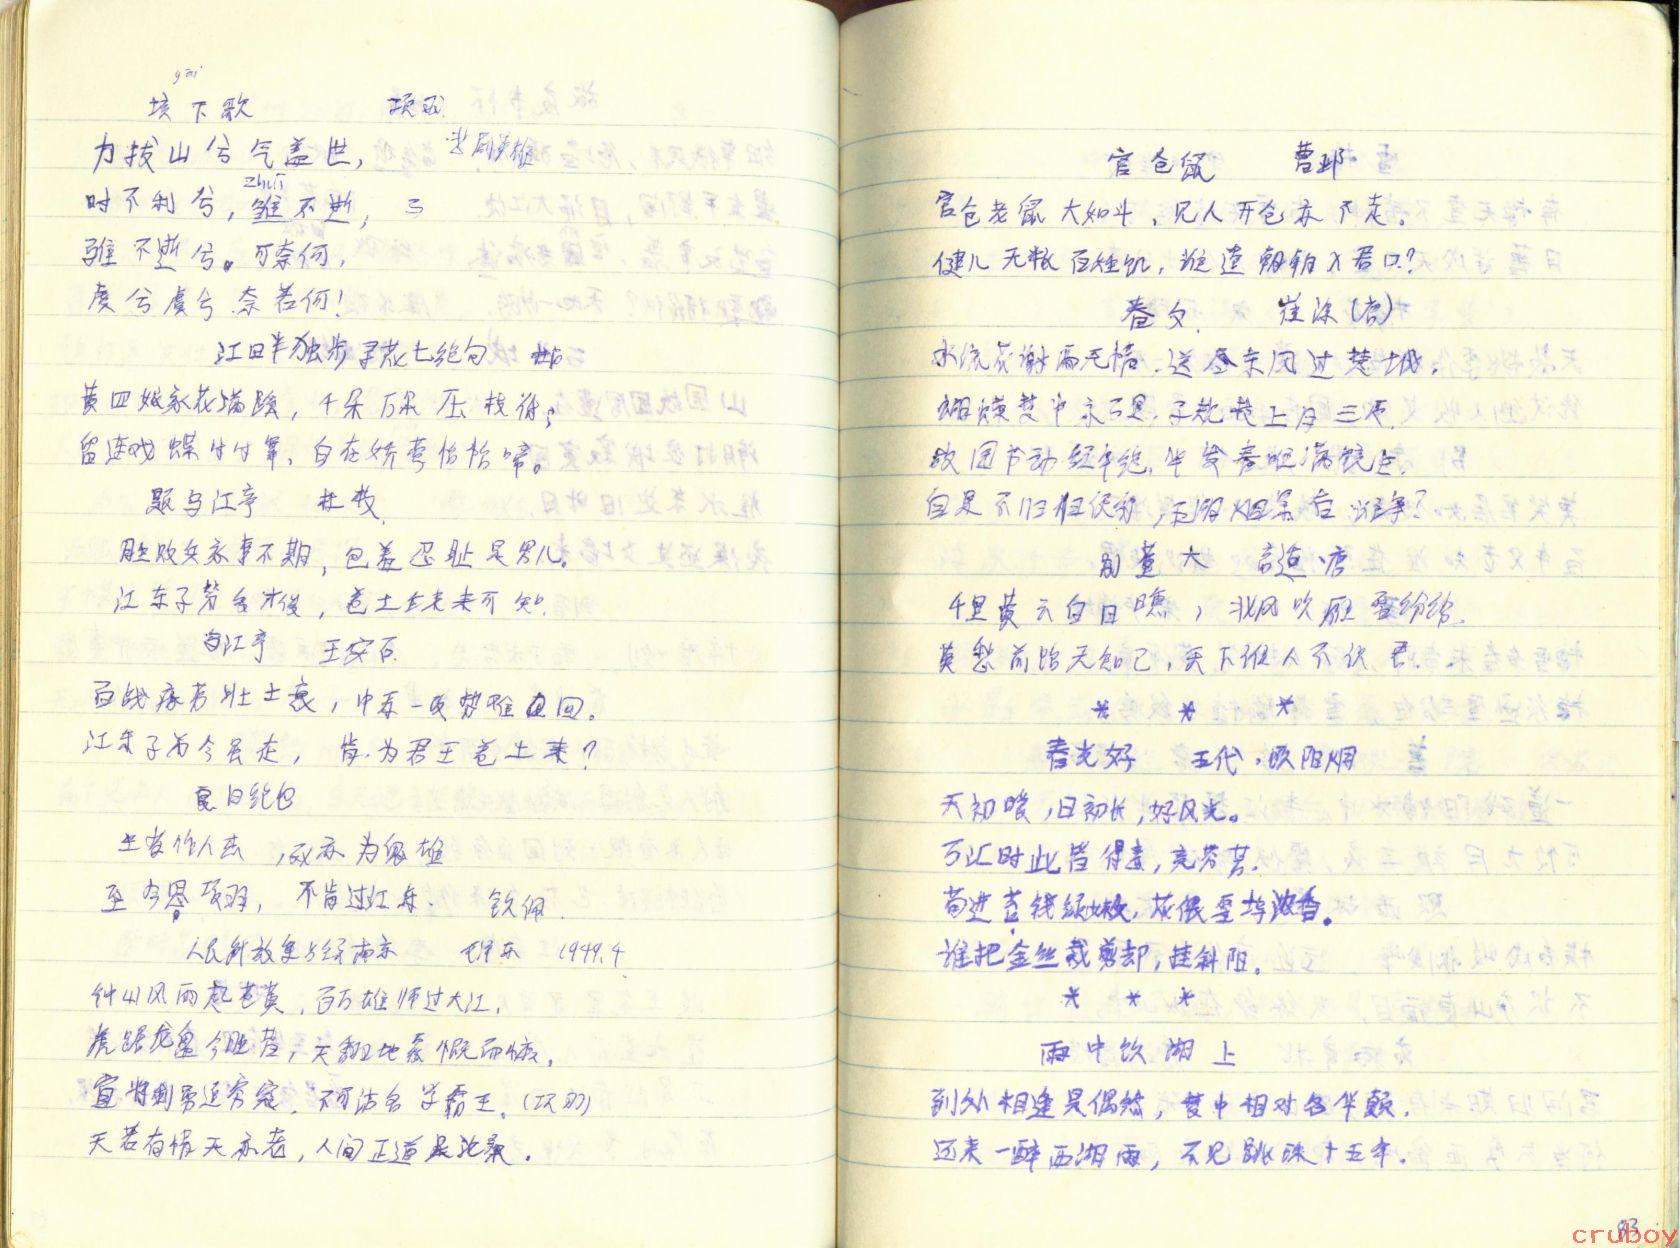 gāi
垓下歌 项羽
力拔山兮气盖世，悲剧英雄
时不利兮，骓不逝，
zhuī
骓不逝兮。可奈何，
虞兮虞兮.奈若何！
江日半独步寻花七绝句
黄四娘家花满蹊，千朵万朵压枝低；
留连戏蝶时时舞，自在娇莺恰恰啼。
题乌江亭 杜牧
胜败兵家事不期，包羞忍耻是男儿。
江东子弟多才俊，卷土重来未可知！
乌江亭 王安石
百战疲劳壮士哀，中原一败势难回。
江东子弟今虽在，肯为君王卷土来？
夏日绝句
生当作人杰，死亦为鬼雄
至今思项羽，不肯过江东. 钦佩.
人民解放军占领南京 毛泽东 1949.4
钟山风雨起苍黄，百万雄师过大江，
虎踞龙盘今胜昔，天翻地覆慨而慷，
宜将剩勇追穷寇.不可沽名学霸王.(项羽)
天若有情天亦老，人间正道是沧桑．
官仓鼠 曹邺
官仓老鼠大如斗，见人开仓亦不走。
健儿无粮百姓饥，谁遣朝朝入君口？
春夕. 崔涂(唐)
水流花谢两无情.送尽东风过楚城.
蝴蝶梦中家万里.子规枝上月三更.
故园书动经年绝.华发春唯满镜生.
自是不归归便得，五湖烟景有谁争？
别董大 高适 唐
千里黄云白日曛，北风吹雁雪纷纷.
莫愁前路无知己，天下谁人不识君.
* * *
春光好 五代.欧阳炯
天初暖，日初长，好风光。
万汇时此皆得意，竞芬芳.
笋迸苔钱绿嫩，花偎雪坞浓香。
谁把金丝裁剪却，挂斜阳.
* * *
雨中饮湖上
到处相逢是偶然，梦中相对各华颠.
还来一醉西湖雨，不见跳珠十五年.
93
cruboy